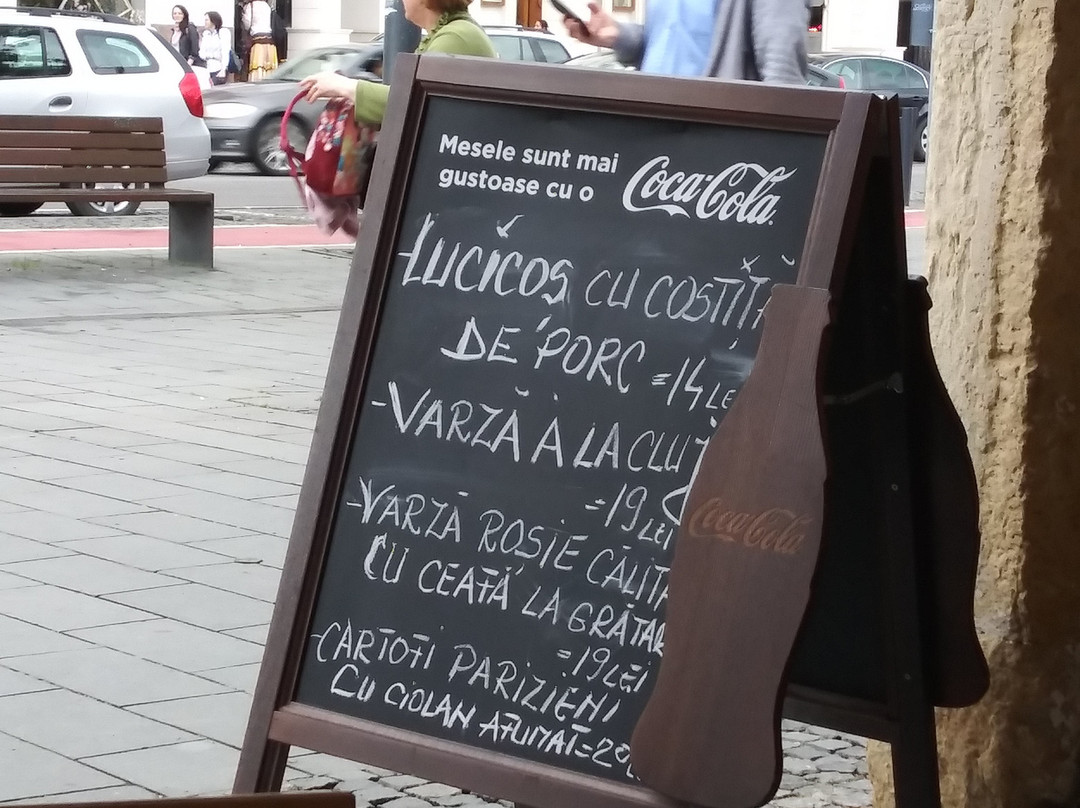 Mesele sunt mai
gustoase cu o Coca-Cola
-LUCICOS CU COSTIȚĂ
DE PORC =14 LEI
-VARZĂ A LA CLUJ
=19 LEI
-VARZĂ ROȘIE CĂLITĂ
CU CEAFĂ LA GRĂTAR
=19 LEI
-CARTOFI PARIZIENI
CU CIOLAN AFUMAT=20
Coca-Cola